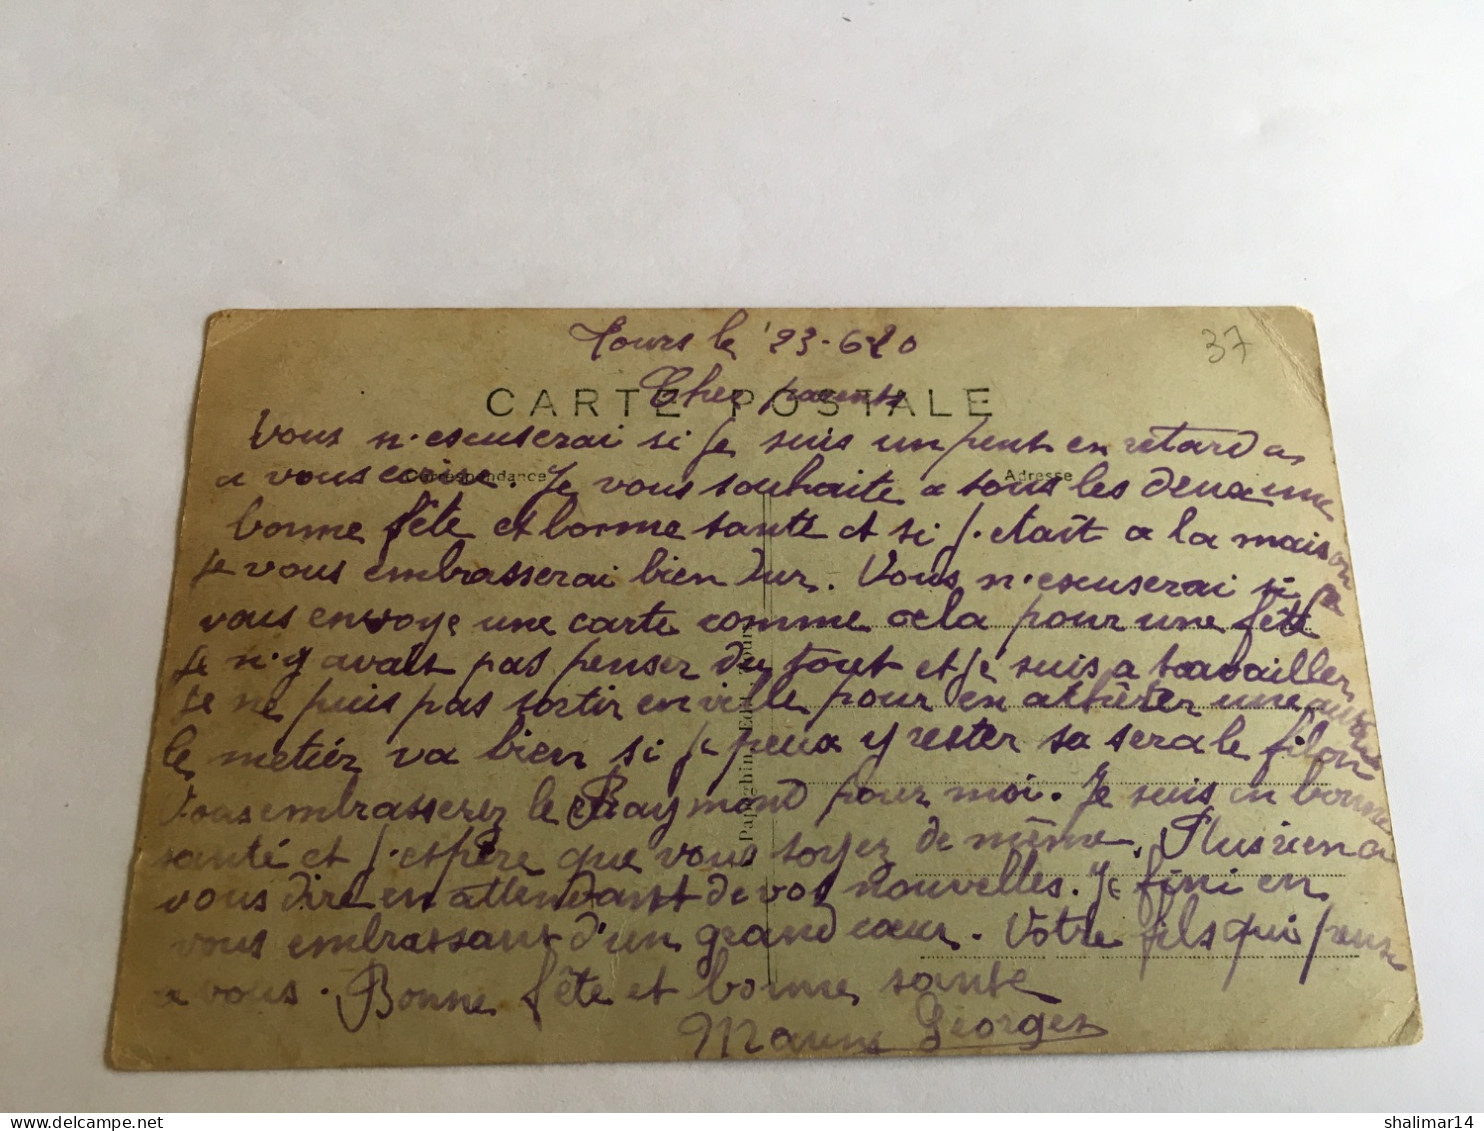 Tours le 23-6-20
37
Cher parents
CARTE POSTALE
Vous n'escuserai si je suis un peut en retard a
a vous ecire. Je vous souhaite a tous les deux une
Correspondance
Adresse
bonne fête et bonne santé et si j'etait a la maison
Je vous embrasserai bien dur. Vous n'escuserai si je
vous envoye une carte comme cela pour une fête
Je n'y avait pas penser du tout et je suis a travailler
Je ne puis pas sortir en ville pour en acheter une autre
le metier va bien si je peux y rester sa sera le filon
Vous embrasserez le Raymond pour moi. Je suis en bonne
santé et j'espère que vous soyez de même. Plus rien a
vous dire en attendant de vos nouvelles. Je fini en
vous embrassant d'un grand cœur. Votre fils qui pense
a vous. Bonne fête et bonne sante
Georges
Papeghin Edit. Tours
shalimar14